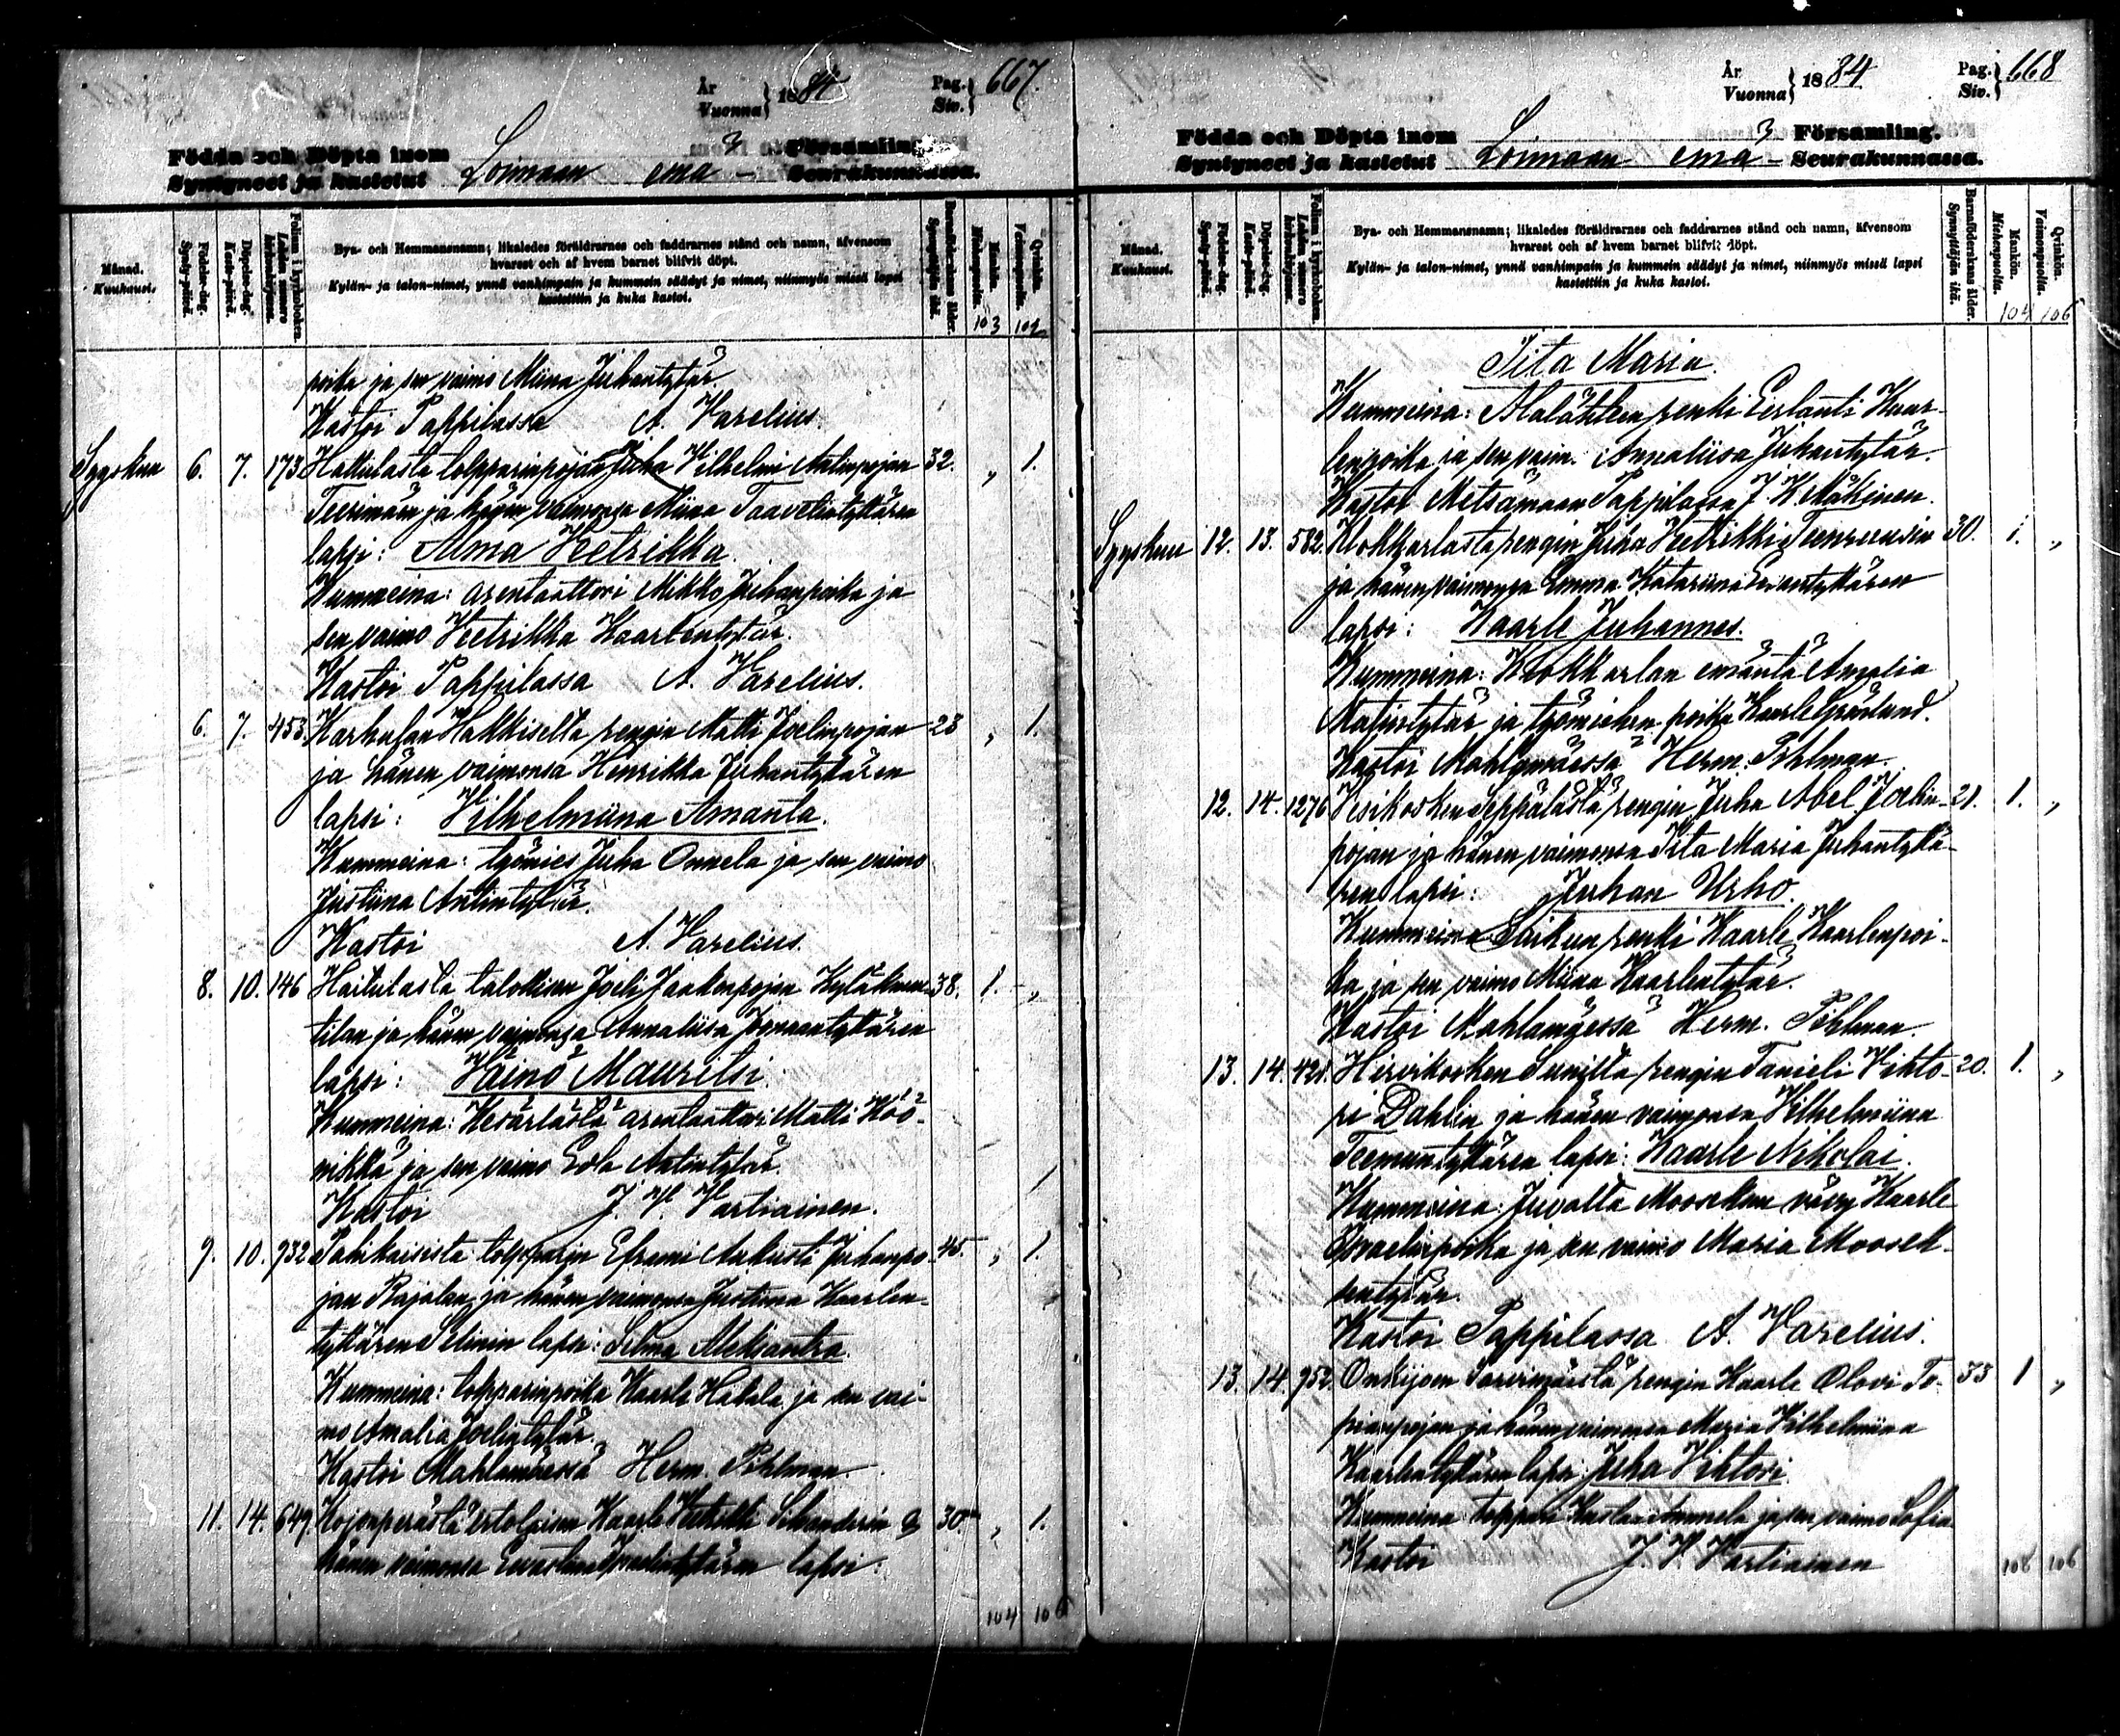 År
Vuonna } 1884
Pag.
Siv. } 667.
Födda och Döpta inom
Syntyneet ja kastetut
Loimaan emä-
Församling.
Seurakunnassa.
Månad.
Kuukausi.
Födelse-dag.
Synty-päivä.
Döpelse-dag.
Kaste-päivä.
Folium i kyrkoboken.
Lehden numero kirkonkirjassa.
Bya- och Hemmansnamn; likaledes föräldrarnes och faddrarnes stånd och namn, äfvensom
hvarest och af hvem barnet blifvit döpt.
Kylän- ja talon-nimet, ynnä vanhimpain ja kummein säädyt ja nimet, niinmyös missä lapsi
kastettiin ja kuka kastoi.
Barnaföderskans ålder.
Synnyttäjän ikä.
Mankön.
Miehenpuolia.
Qvinkön.
Vaimonpuolia.
103 102
poika ja sen vaimo Miina Juhantytär.
Kastoi Pappilassa A. Varelius.
Syyskuu 6. 7. 173 Hattulasta torpparinpojan Juha Vilhelmi Antinpojan 32. „ 1.
Teerimäen ja hänen vaimonsa Miina Taavetintyttären
lapsi: Alma Vetrikka.
Kummeina: arentaattori Mikko Juhanpoika ja
sen vaimo Veetrikka Kaarlentytär.
Kastoi Pappilassa A. Varelius.
6. 7. 453. Karhulan Hakkiselta rengin Matti Joelinpojan 23 „ 1.
ja hänen vaimonsa Henrikka Juhantyttären
lapsi: Vilhelmiina Amanta.
Kummeina: työmies Juha Onnela ja sen vaimo
Justiina Antintytär.
Kastoi A. Varelius.
8. 10. 146 talollisen Joeli Jaakonpojan 38. 1. „
tilan ja hänen vaimonsa Annaliisa Joonaantyttären
lapsi: Väinö Mauritsi.
Kummeina: arentaattori Matti Köö-
nikkä ja sen vaimo Eeva Antintytär.
Kastoi J. V. Vartiainen.
9. 10. 932 torpparin Efraimi Aukusti Juhanpo- 45. „ 1.
jan Rajalan ja hänen vaimonsa Justiina Kaarlen-
tyttären lapsi: Selma Aleksantra.
Kummeina: torpparinpoika Kaarle Hakala ja sen vai-
mo Amalia Joelintytär.
Kastoi Mahlamäessä Herm. Pohlman.
11. 14. 649. Kojonperästä itsellisen Kaarle 30. „ 1.
hänen vaimonsa lapsi:
104 106
År
Vuonna } 1884
Pag.
Siv. } 668
Födda och Döpta inom
Syntyneet ja kastetut
Loimaan emä-
Församling.
Seurakunnassa.
Månad.
Kuukausi.
Födelse-dag.
Synty-päivä.
Döpelse-dag.
Kaste-päivä.
Folium i kyrkoboken.
Lehden numero kirkonkirjassa.
Bya- och Hemmansnamn; likaledes föräldrarnes och faddrarnes stånd och namn, äfvensom
hvarest och af hvem barnet blifvit döpt.
Kylän- ja talon-nimet, ynnä vanhimpain ja kummein säädyt ja nimet, niinmyös missä lapsi
kastettiin ja kuka kastoi.
Barnaföderskans ålder.
Synnyttäjän ikä.
Mankön.
Miehenpuolia.
Qvinkön.
Vaimonpuolia.
104 106
Iita Maria.
Kummeina: renki Eerlanti Kaar-
lenpoika ja sen vaim. Annaliisa Juhantytär.
Kastoi Metsämaan Pappilassa J. K. Mäkinen.
Syyskuu 12. 13. 582. Klokkarlasta rengin Juha Vetrikki 30. 1. „
ja hänen vaimonsa Emma Katariina
lapsi: Kaarle Juhannes.
Kummeina: Klokkarlan emäntä Amalia
Matintytär ja työmiehen poika Kaarle Grönlund.
Kastoi Mahlamäessä Herm. Pohlman.
12. 14. 1276 Vesikosken Seppälästä rengin Juha Abel Joelin- 21. 1. „
pojan ja hänen vaimonsa Iita Maria Juhantyttä-
ren lapsi: Juhan Urho.
Kummeina renki Kaarle Kaarlenpoi-
ka ja sen vaimo Miina Kaarlentytär.
Kastoi Mahlamäessä Herm. Pohlman.
13. 14. 421. Hirvikosken rengin Tanieli Vihto- 20. 1. „
ri Dahlin ja hänen vaimonsa Vilhelmiina
Teemuntyttären lapsi: Kaarle Nikolai.
Kummeina: Juvalta Moosekan vävy Kaarle
Israelinpoika ja sen vaimo Maria Moosek-
sentytär.
Kastoi Pappilassa A. Varelius.
13. 14. 952. Onkijoen rengin Kaarle Olovi To- 33 1 „
piaanpojan ja hänen vaimonsa Maria Vilhelmiina
Kaarlentyttären lapsi: Juha Vihtori.
Kummeina: torppari ja sen vaimo Sofia
Kastoi J. V. Vartiainen
108 106